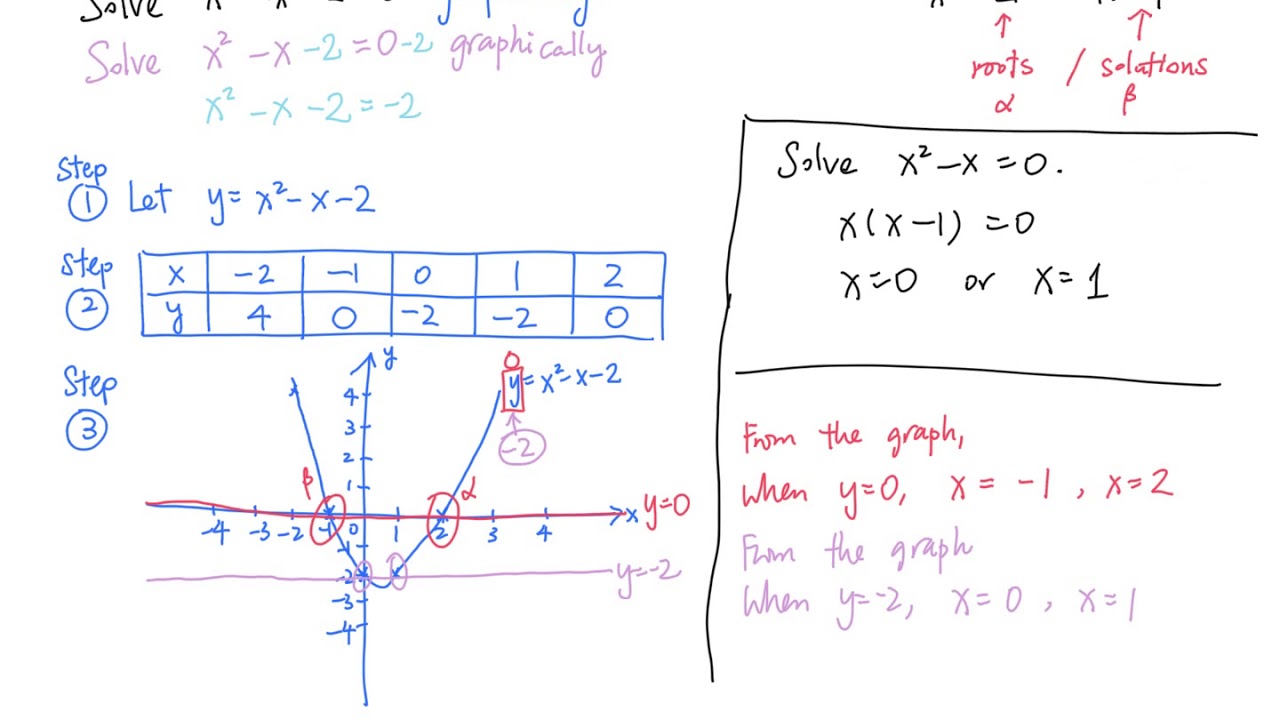 Solve
Solve x² - x - 2 = 0 - 2 graphically
x² - x - 2 = -2
Step ① Let y = x² - x - 2
Step ②
x -2 -1 0 1 2
y 4 0 -2 -2 0
Step ③
y
0
y = x² - x - 2
-2
4
3
2
1
β α
-4 -3 -2 -1 0 1 2 3 4 x y=0
-1
-2
y=-2
-3
-4
↑ ↑
roots / solations
α β
Solve x² - x = 0.
x(x - 1) = 0
x = 0 or x = 1
From the graph,
When y=0, x = -1, x = 2
From the graph
When y=-2, x = 0, x = 1